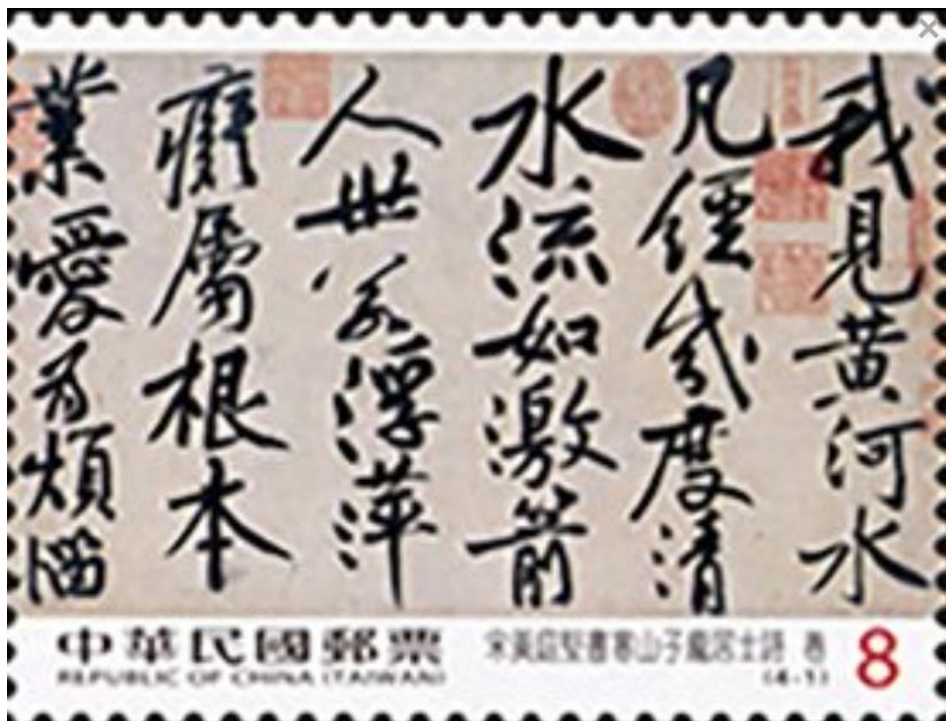 我見黃河水
凡經幾度清
水流如激箭
人世若浮萍
癡屬根本
業愛為煩惱
中華民國郵票
REPUBLIC OF CHINA (TAIWAN)
宋黃庭堅書寒山子龐居士詩 卷
(4-1)
8